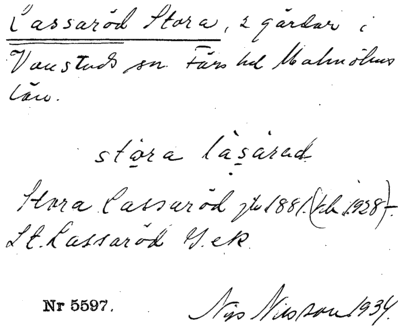 Lassaröd Stora, 2 gårdar i
Vanstads sn Färs hd Malmöhus
län.
stọra lạ̊sạrad
Stora Lassaröd jb 1881 (
1928)-
St. Lassaröd G. ek
Nr 5597.
Nils Nilsson 1934.